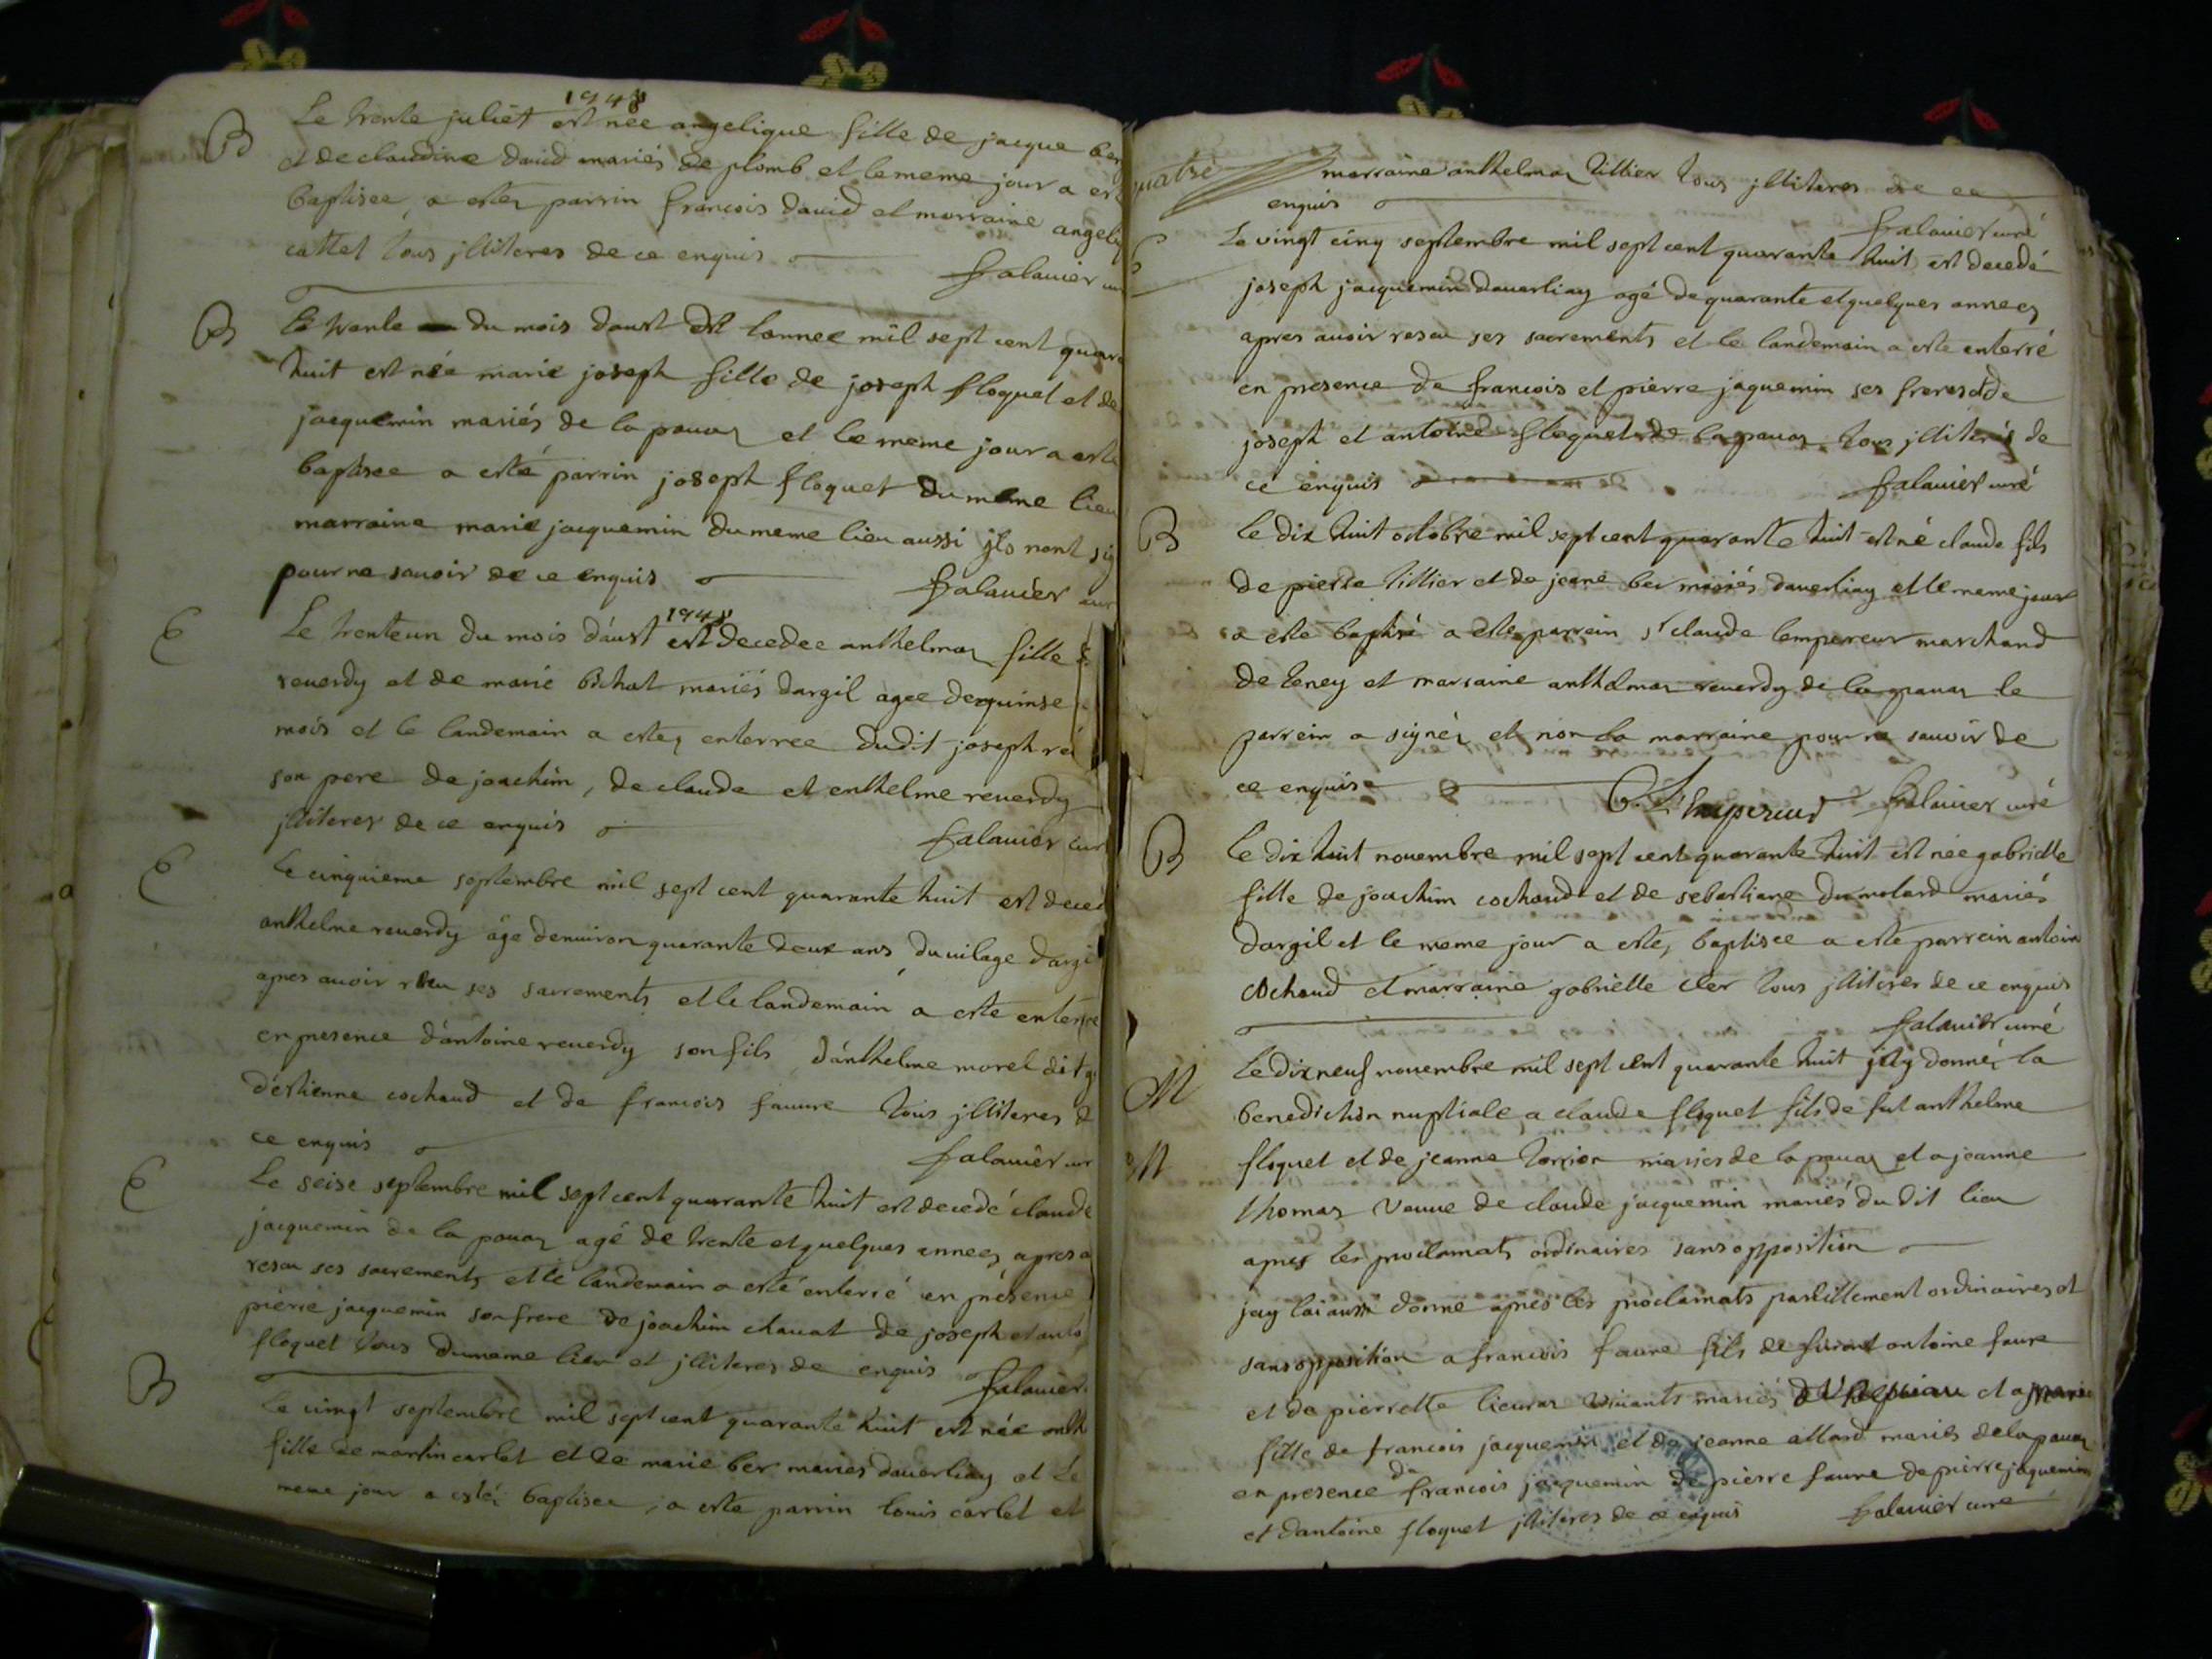 1748
B Le trente juliet est née angelique fille de jacque ber
et de claudine david mariés de plomb et le meme jour a est
baptisee, a estez parrin francois david et marraine angeli
cattet tous jlliteres de ce enquis
falavier cur
B Le trente du mois daust de lannee mil sept cent quara
huit est née marie joseph fille de joseph floquet et de
jacquemin mariés de la pouaz et le meme jour a este
baptisee a esté parrin joseph floquet du meme lieu
marraine marie jacquemin du meme lieu aussi jls nont sig
pour ne savoir de ce enquis
falavier cur
1748
E Le trente un du mois daust est decedee anthelmaz fille
reverdy et de marie bichat mariés dargil agee de quinse
mois et le landemain a estez enterree dudit joseph re
son pere de joachim, de claude et enthelme reverdy
jlliteres de ce enquis
falavier cur
E Le cinquieme septembre mil sept cent quarante huit est deced
anthelme reverdy âge denviron quarante deux ans du vilage dargi
apres avoir ses sacrements et le landemain a este enterre
en presence dantoine reverdy son fils danthelme morel dit
destienne cochaud et de francois fauure tous jlliteres d
ce enquis
falavier cur
E Le seise septembre mil sept cent quarante huit est decedé claude
jacquemin de la pouaz agé de trente et quelques annees apres a
reseu ses sacrements et le landemain a esté enterré en présence
pierre jacquemin son frere de joachim chavat de joseph et anto
floquet tous du meme lieu et jlliteres de enquis
falavier
B Le vingt septembre mil sept cent quarante huit est née anth
fille de martin carlet et de marie ber maries daverliay et le
meme jour a estéz baptisee, a este parrin louis carlet et
marraine anthelmaz tillier tous jlliteres de ce
enquis
falavier curé
E Le vingt cinq septembre mil sept cent quarante huit est decedé
joseph jacquemin daverliay agé de quarante et quelques annees
apres avoir reseu ses sacrements et le landemain a este enterré
en presence de francois et pierre jaquemin ses freres et de
joseph et antoine floquet de la pouaz tous jlliterés de
ce enquis
falavier curé
B Le dix huit octobre mil sept cent quarante huit est né claude fils
de pierre tillier et de jeane ber mariés daverliay et le meme jour
a este baptisé a este parrein sr claude lempereur marchand
de teney et marraine anthelmaz reverdy de la pouaz le
parrein a signéz et non la marraine pour ne savoir de
ce enquis
C. L'Empereur falavier curé
B Le dix huit novembre mil sept cent quarante huit est née gabrielle
fille de joachim cochaud et de sebastiane dumolard mariés
dargil et le meme jour a este, baptisee a este parrein antoin
cochaud et marraine gabrielle cler tous jlliteres de ce enquis
falavier curé
M Le dix neuf novembre mil sept cent quarante huit jay donnéz la
benediction nuptiale a claude floquet fils de fut anthelme
M floquet et de jeanne maries de la pouaz et a jeanne
thomaz veuve de claude jacquemin mariés du dit lieu
apres les proclamats ordinaires sans opposition
jay lai aussi donne apres les proclamats pareillement ordinaires et
sans opposition a francois faure fils de antoine faure
et de pierrette vivants mariés et a marie
fille de francois jacquemin et de jeanne allard mariés de la pouaz
en presence de francois jacquemin de pierre faure de pierre jaquemin
et dantoine floquet jlliteres de ce enquis
falavier cure